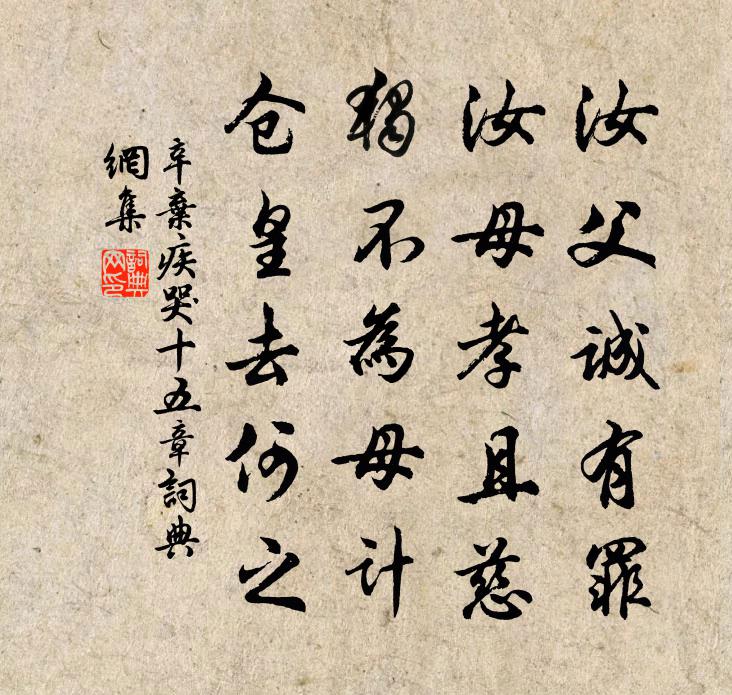 汝父诚有罪
汝母孝且慈
独不為母计
仓皇去何之
辛棄疾哭十五章詞典
網集
詞典
网印